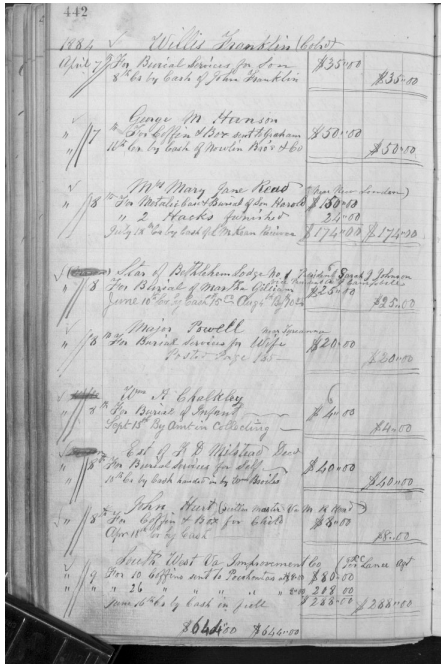 442
1884 Willis Franklin (Col'd)
April 7 For Burial Services for Son $35.00
8th Cr by Cash of John Franklin $35.00
George M
" 7 For Coffin & Box sent to Graham $50.00
Cr. by Cash of Bro's & Co $50.00
Mrs Mary Jane Read (near New London)
" 8 For Metalic Case & Burial of Son Harold $150.00
" 2 Hacks furnished 24.00
July Cr by Cash of $174.00 $174.00
Star of Bethlehem Lodge No President Sarah J Johnson
" 8 For Burial of Martha $25.00
June 10th Cr by Cash $25.00
Major Powell near
" 8 For Burial Services for Wife $20.00
Posted Page 165 $20.00
Wm A Chalkley
" 8 For Burial of Infant $4.00
Sept 15th By Amt in Collecting $4.00
Est of Dec'd
" 8 For Burial Services for Self $40.00
Cr by Cash handed in by $40.00
John Hart
" 8 For Coffin & Box for Child $8.00
Apr Cr by Cash $8.00
South West Va Improvement Co
" 9 For 10 Coffins sent to Pocahontas 8.00 $80.00
" " 26 " " " " 8.00 208.00
June Cr by Cash in full $288.00 $288.00
$644.00 $644.00